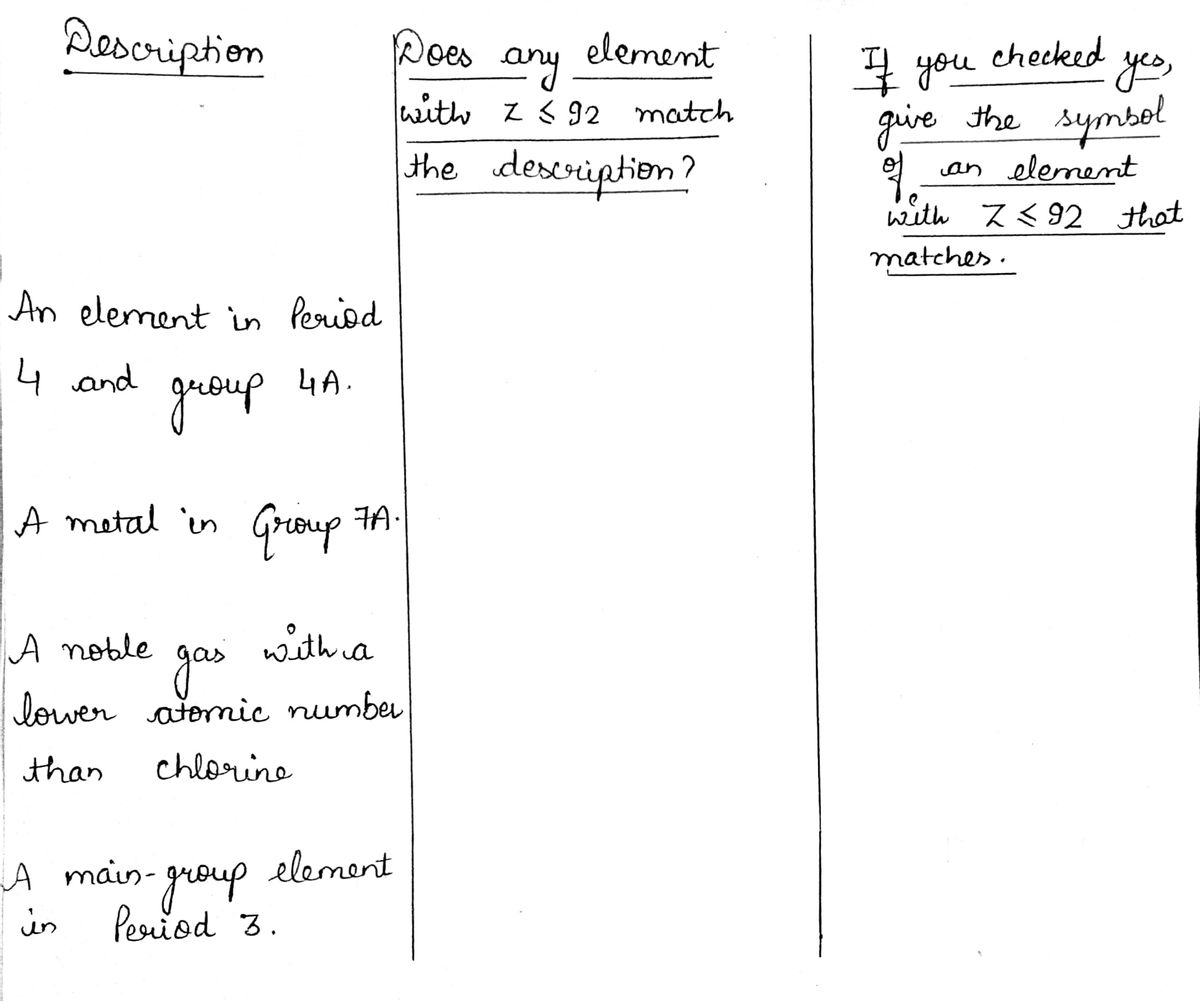 Description
Does any element
with Z ≤ 92 match
the description?
If you checked yes,
give the symbol
of an element
with Z ≤ 92 that
matches.
An element in Period
4 and group 4A.
A metal in Group 7A.
A noble gas with a
lower atomic number
than chlorine
A main-group element
in Period 3.